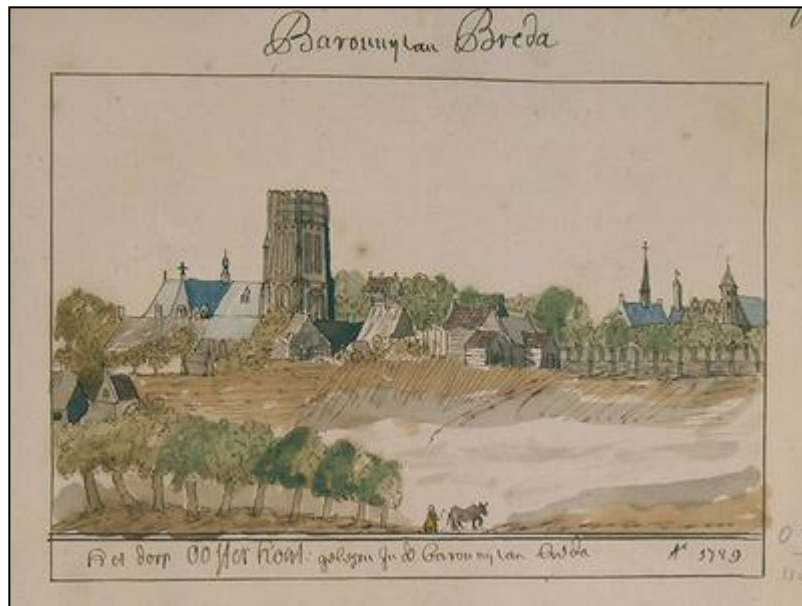 Baronnij van Breda
Het dorp OOsterhout: gelegen In de Baronnij van Breda Aº 1789